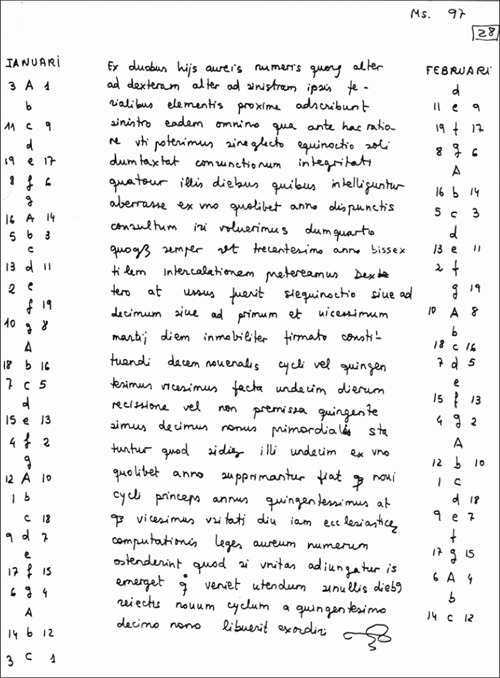 Ms. 97
28
IANUARI
3 A 1
b
11 c 9
d
19 e 17
8 f 6
g
16 A 14
5 b 3
c
13 d 11
2 e
f 19
10 g 8
A
18 b 16
7 c 5
d
15 e 13
4 f 2
g
12 A 10
1 b
c 18
9 d 7
e
17 f 15
6 g 4
A
14 b 12
3 c 1
Ex duobus hijs aureis numeris quorq alter
ad dexteram alter ad sinistram ipsis fe-
rialibus elementis proxime adscribunt
sinistro eadem omnino qua ante hac ratio-
ne vti poterimus sineglecto equinoctio soli
dumtaxtat consunctionum integritati
quatour illis diebus quibus intelliguntur
aberrasse ex vno quolibet anno dispunctis
consultum iri voluerimus dumquarto
semper vt trecentesimo anno bissex
tilem Intercalationem pretereamus Dexte
tero at ussus fuerit siequinoctio siue ad
decimum siue ad primum et uicessimum
martij diem inmobiliter firmato consti-
tuendi decem nouenalis cycli vel quingen
tesimus vicesimus facta undecim dierum
recissione vel non premissa quingente
simus decimus nonus primordialis sta
tuntur quod sidiez illi undecim ex vno
quolibet anno supprimantur fiat noui
cycli princeps annus quingentessimus at
vicesimus vzitati diu iam ecclesiasticę
computationis leges aureum numerum
ostenderint quod si vnitas adiungatur is
emerget veniet utendum sinullis
reiectis nouum cyclum a quingentesimo
decimo nono libuerit exordiri
FEBRUARI
d
11 e 9
19 f 17
8 g 6
A
16 b 14
5 c 3
d
13 e 11
2 f
g 19
10 A 8
b
18 c 16
7 d 5
e
15 f 13
4 g 2
A
12 b 10
1 c
d 18
9 e 7
f
17 g 15
6 A 4
b
14 c 12